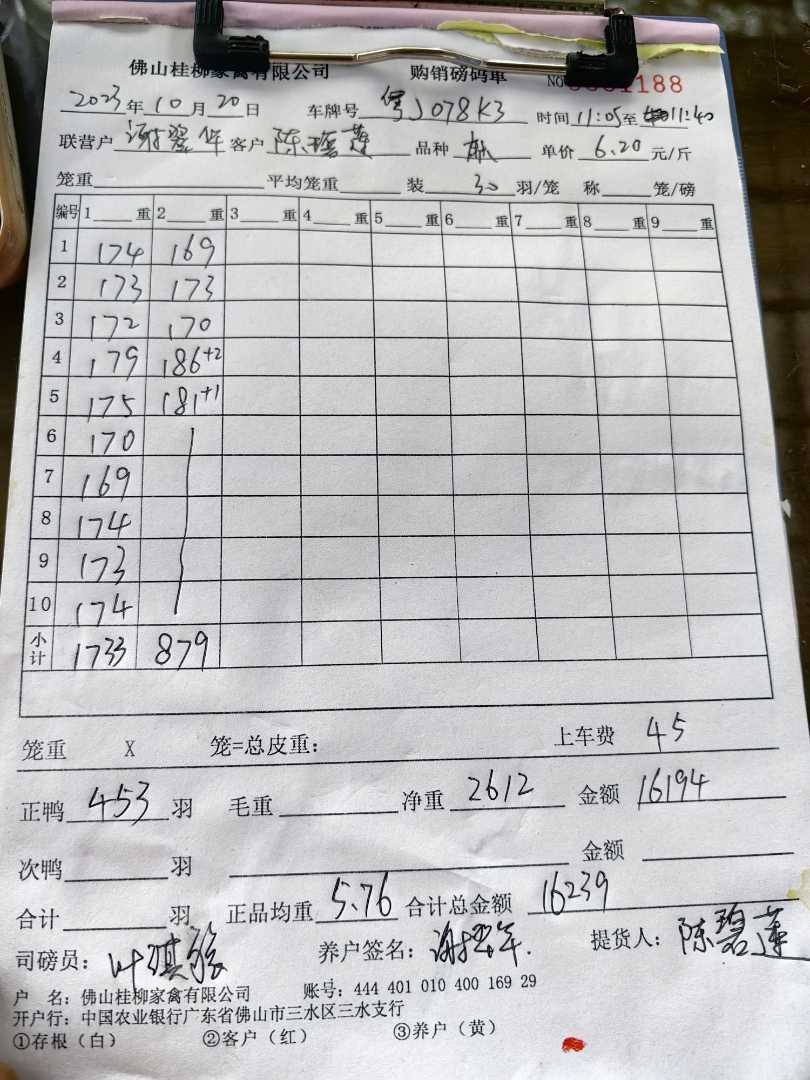 佛山桂柳家禽有限公司 购销磅码单 NO 1188
2023年10月20日 车牌号 粤J078K3 时间 11:05至11:40
联营户 谢翠华 客户 陈碧莲 品种 单价 6.20 元/斤
笼重 平均笼重 装 30 羽/笼 称 笼/磅
编号 1 重 2 重 3 重 4 重 5 重 6 重 7 重 8 重 9 重
1 174 169
2 173 173
3 172 170
4 179 186+2
5 175 181+1
6 170
7 169
8 174
9 173
10 174
小计 1733 879
笼重 X 笼=总皮重: 上车费 45
正鸭 453 羽 毛重 净重 2612 金额 16194
次鸭 羽 金额
合计 羽 正品均重 5.76 合计总金额 16239
司磅员: 叶琪 养户签名: 谢翠华. 提货人: 陈碧莲
户 名: 佛山桂柳家禽有限公司 账号: 444 401 010 400 169 29
开户行: 中国农业银行广东省佛山市三水区三水支行
①存根(白) ②客户(红) ③养户(黄)